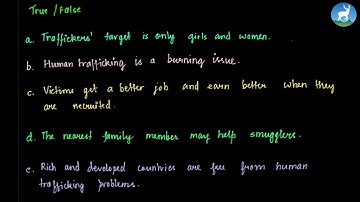 True / False
a. Traffickers' target is only girls and women.
b. Human trafficking is a burning issue.
c. Victims get a better job and earn better when they
are recruited.
d. The nearest family member may help smugglers.
e. Rich and developed countries are free from human
trafficking problems.